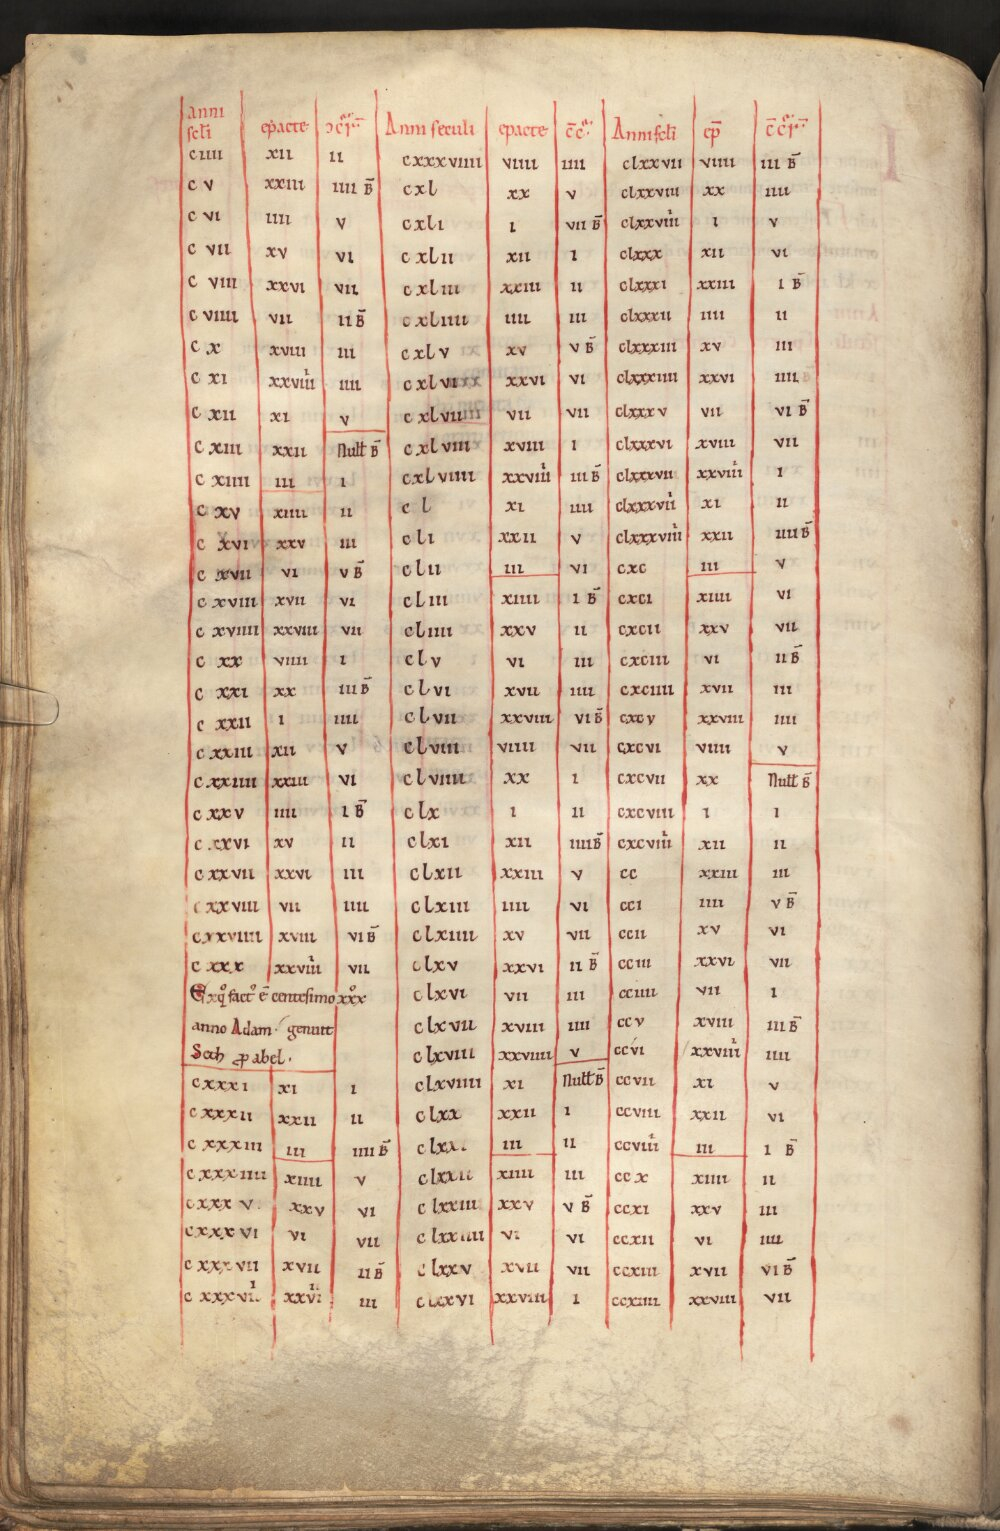 Anni
scl̄i epacte ↄcr̄
c iiii xii ii
c v xxiii iiii B̄
c vi iiii v
c vii xv vi
c viii xxvi vii
c viiii vii ii B̄
c x xviii iii
c xi xxviiii iiii
c xii xi v
c xiii xxii Null B̄
c xiiii iii i
c xv xiiii ii
c xvi xxv iii
c xvii vi v B̄
c xviii xvii vi
c xviiii xxviii vii
c xx viiii i
c xxi xx iii B̄
c xxii i iiii
c xxiii xii v
c xxiiii xxiii vi
c xxv iiii i B̄
c xxvi xv ii
c xxvii xxvi iii
c xxviii vii iiii
c xxviiii xviii vi B̄
c xxx xxviiii vii
Ex qͦ factꝰ ē centesimo xxxͦ
anno Adam. genuit
Seth ꝓ abel.
cxxxi xi i
cxxxii xxii ii
c xxxiii iii iiii B̄
c xxxiiii xiiii v
cxxx v xxv vi
cxxx vi vi vii
c xxxvii xvii ii B̄
Anni seculi epacte c̄c̄
cxxxviiii viiii iiii
cxl xx v
cxli i vii B̄
cxlii xii i
cxliii xxiii ii
cxliiii iiii iii
cxlv xv v B̄
cxlvi xxvi vi
cxlvii vii vii
cxlviii xviii i
cxlviiii xxviiii iii B̄
cl xi iiii
cli xxii v
clii iii vi
cliii xiiii i B̄
cliiii xxv ii
clv vi iii
clvi xvii iiii
clvii xxviii vi B̄
clviii viiii vii
clviiii xx i
clx i ii
clxi xii iiii B̄
clxii xxiii v
clxiii iiii vi
clxiiii xv vii
clxv xxvi ii B̄
clxvi vii iii
clxvii xviii iiii
clxviii xxviiii v
clxviiii xi Null B̄
clxx xxii i
clxxi iii ii
clxxii xiiii iii
clxxiii xxv v B̄
clxxiiii vi vi
clxxv xvii vii
clxxvi xxviii i
Anni scl̄i ep̄ c̄c̄r̄
clxxvii viiii iii B̄
clxxviii xx iiii
clxxviiii i v
clxxx xii vi
clxxxi xxiii i B̄
clxxxii iiii ii
clxxxiii xv iii
clxxxiiii xxvi iiii
clxxxv vii vi B̄
clxxxvi xviii vii
clxxxvii xxviiii i
clxxxviii xi ii
clxxxviiii xxii iiii B̄
cxc iii v
cxci xiiii vi
cxcii xxv vii
cxciii vi ii B̄
cxciiii xvii iii
cxcv xxviii iiii
cxcvi viiii v
cxcvii xx Null B̄
cxcviii i i
cxcviiii xii ii
cc xxiii iii
cci iiii v B̄
ccii xv vi
cciii xxvi vii
cciiii vii i
ccv xviii iii B̄
ccvi xxviiii iiii
ccvii xi v
ccviii xxii vi
ccviiii iii i B̄
ccx xiiii ii
ccxi xxv iii
ccxii vi iiii
ccxiii xvii vi B̄
ccxiiii xxviii vii